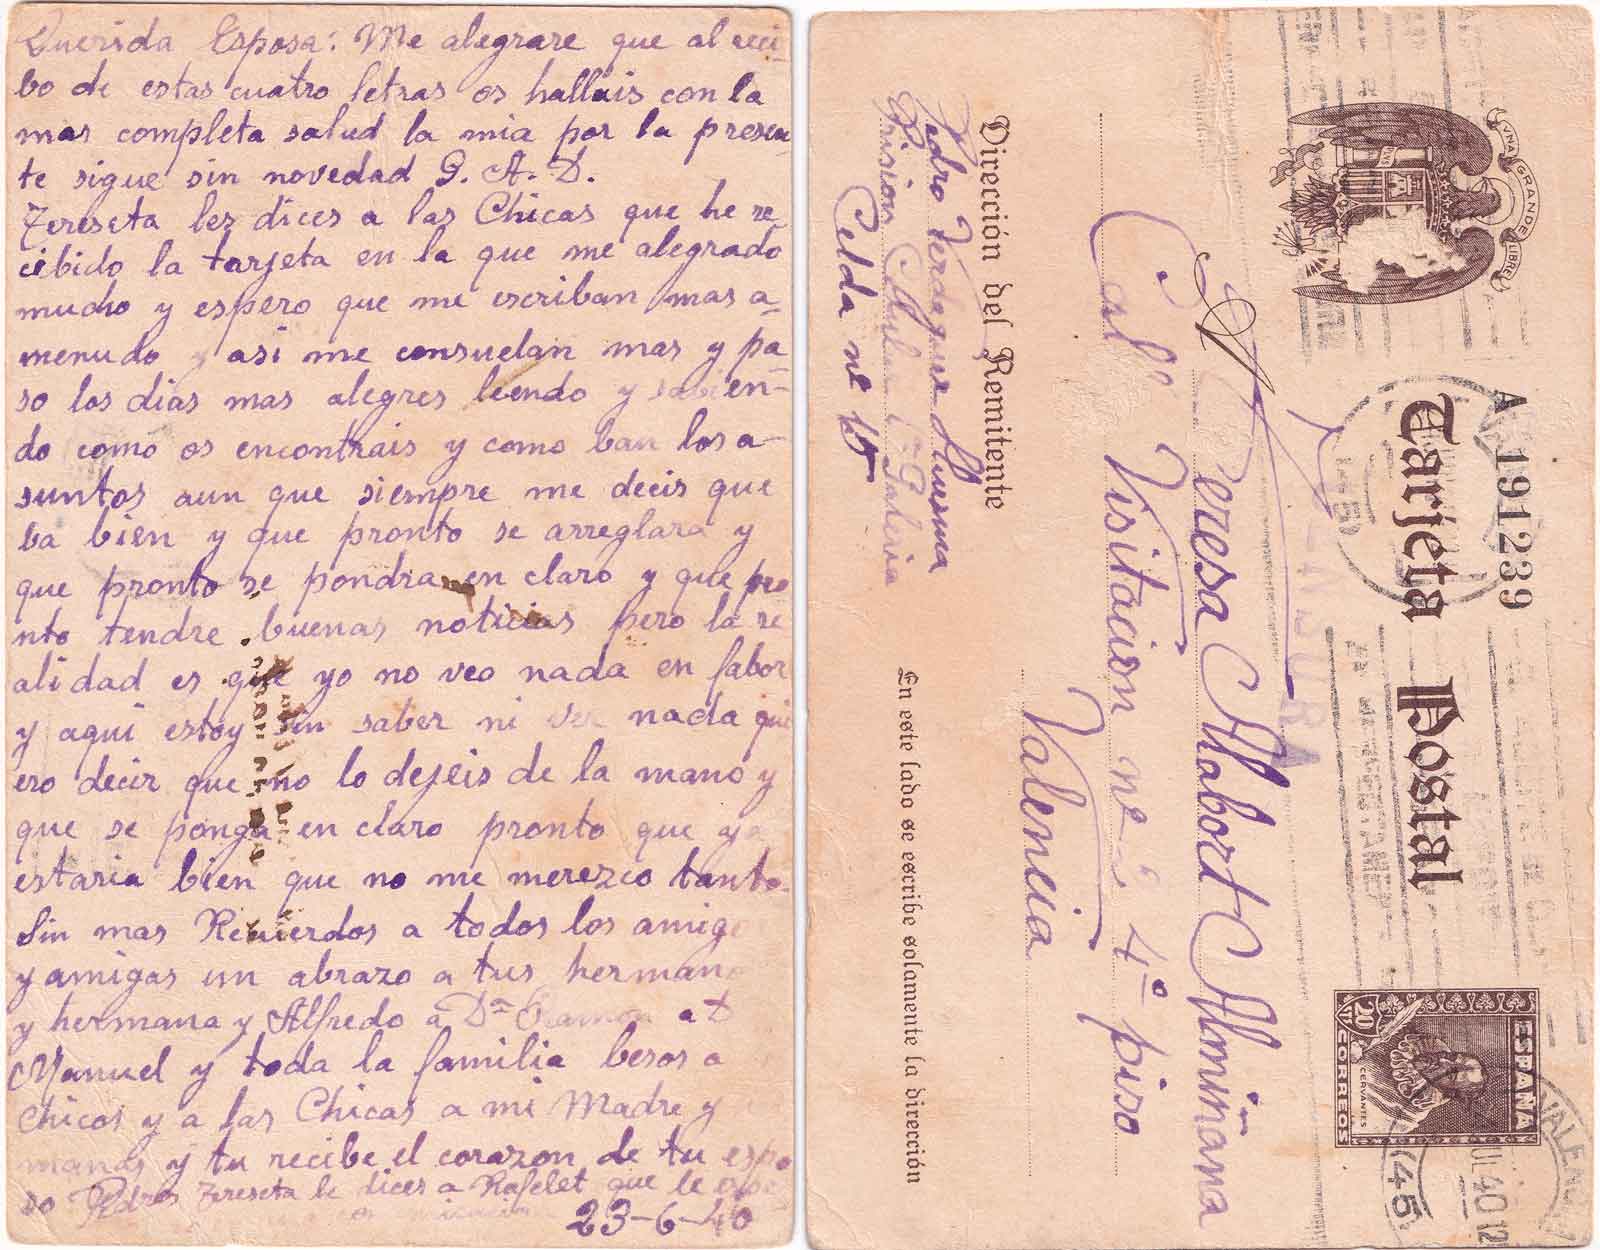 Querida Esposa: Me alegrare que al reci-
bo de estas cuatro letras os hallais con la
mas completa salud la mia por la presen-
te sigue sin novedad G. A. D.
Tereseta lez dices a las Chicas que he re
cibido la tarjeta en la que me alegrado
mucho y espero que me escriban mas a-
menudo y asi me consuelan mas y pa
so los dias mas alegres leendo y sabien-
do como os encontrais y como ban los a-
suntos aun que siempre me decis que
ba bien y que pronto se arreglara y
que pronto se pondra en claro y que pro
nto tendre buenas noticias pero la re
alidad es que yo no veo nada en fabor
y aqui estoy sin saber ni ver nada qui
ero decir que no lo dejeis de la mano y
que se ponga en claro pronto que ya
estaria bien que no me merezco tanto.
Sin mas Recuerdos a todos los amigo
y amigas un abrazo a tus hermano
y hermana y Alfredo a Dª Ramon a D
Manuel y toda la familia besos a
Chicos y a las Chicas a mi Madre y
manas y tu recibe el corazon de tu espo
so Pedro Tereseta le dices a Rafelet que le
23-6-40
UNA GRANDE LIBRE
A 191239
Tarjeta Postal
ESPAÑA
20 CTS
CERVANTES
CORREOS
VALENCIA
JUL 40 12
(45)
CENSURA
A Teresa Alabort Almiñana
Calle Visitacion nº 4º piso
Valencia
Dirección del Remitente
Pedro Verdeguer
Prision Celular Galeria
Celda nº 15
En este lado se escribe solamente la dirección